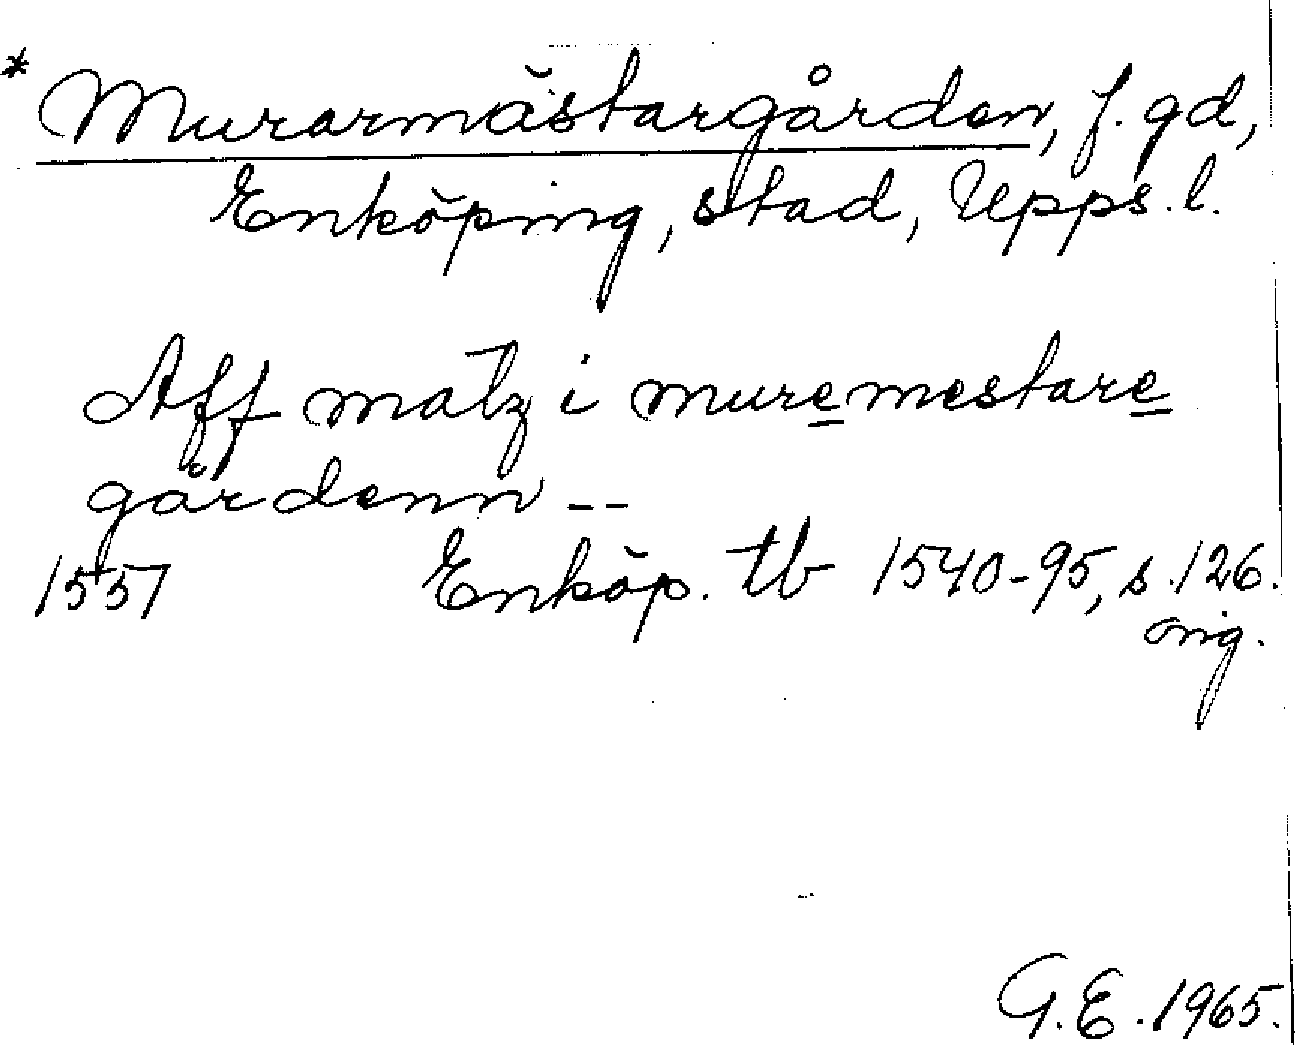 * Murarmästargården, f. gd,
Enköping, stad, Upps. l.
Aff matz i muremestare
gårdenn --
1557 Enköp. tb 1540-95, s. 126.
orig.
G. E. 1965.